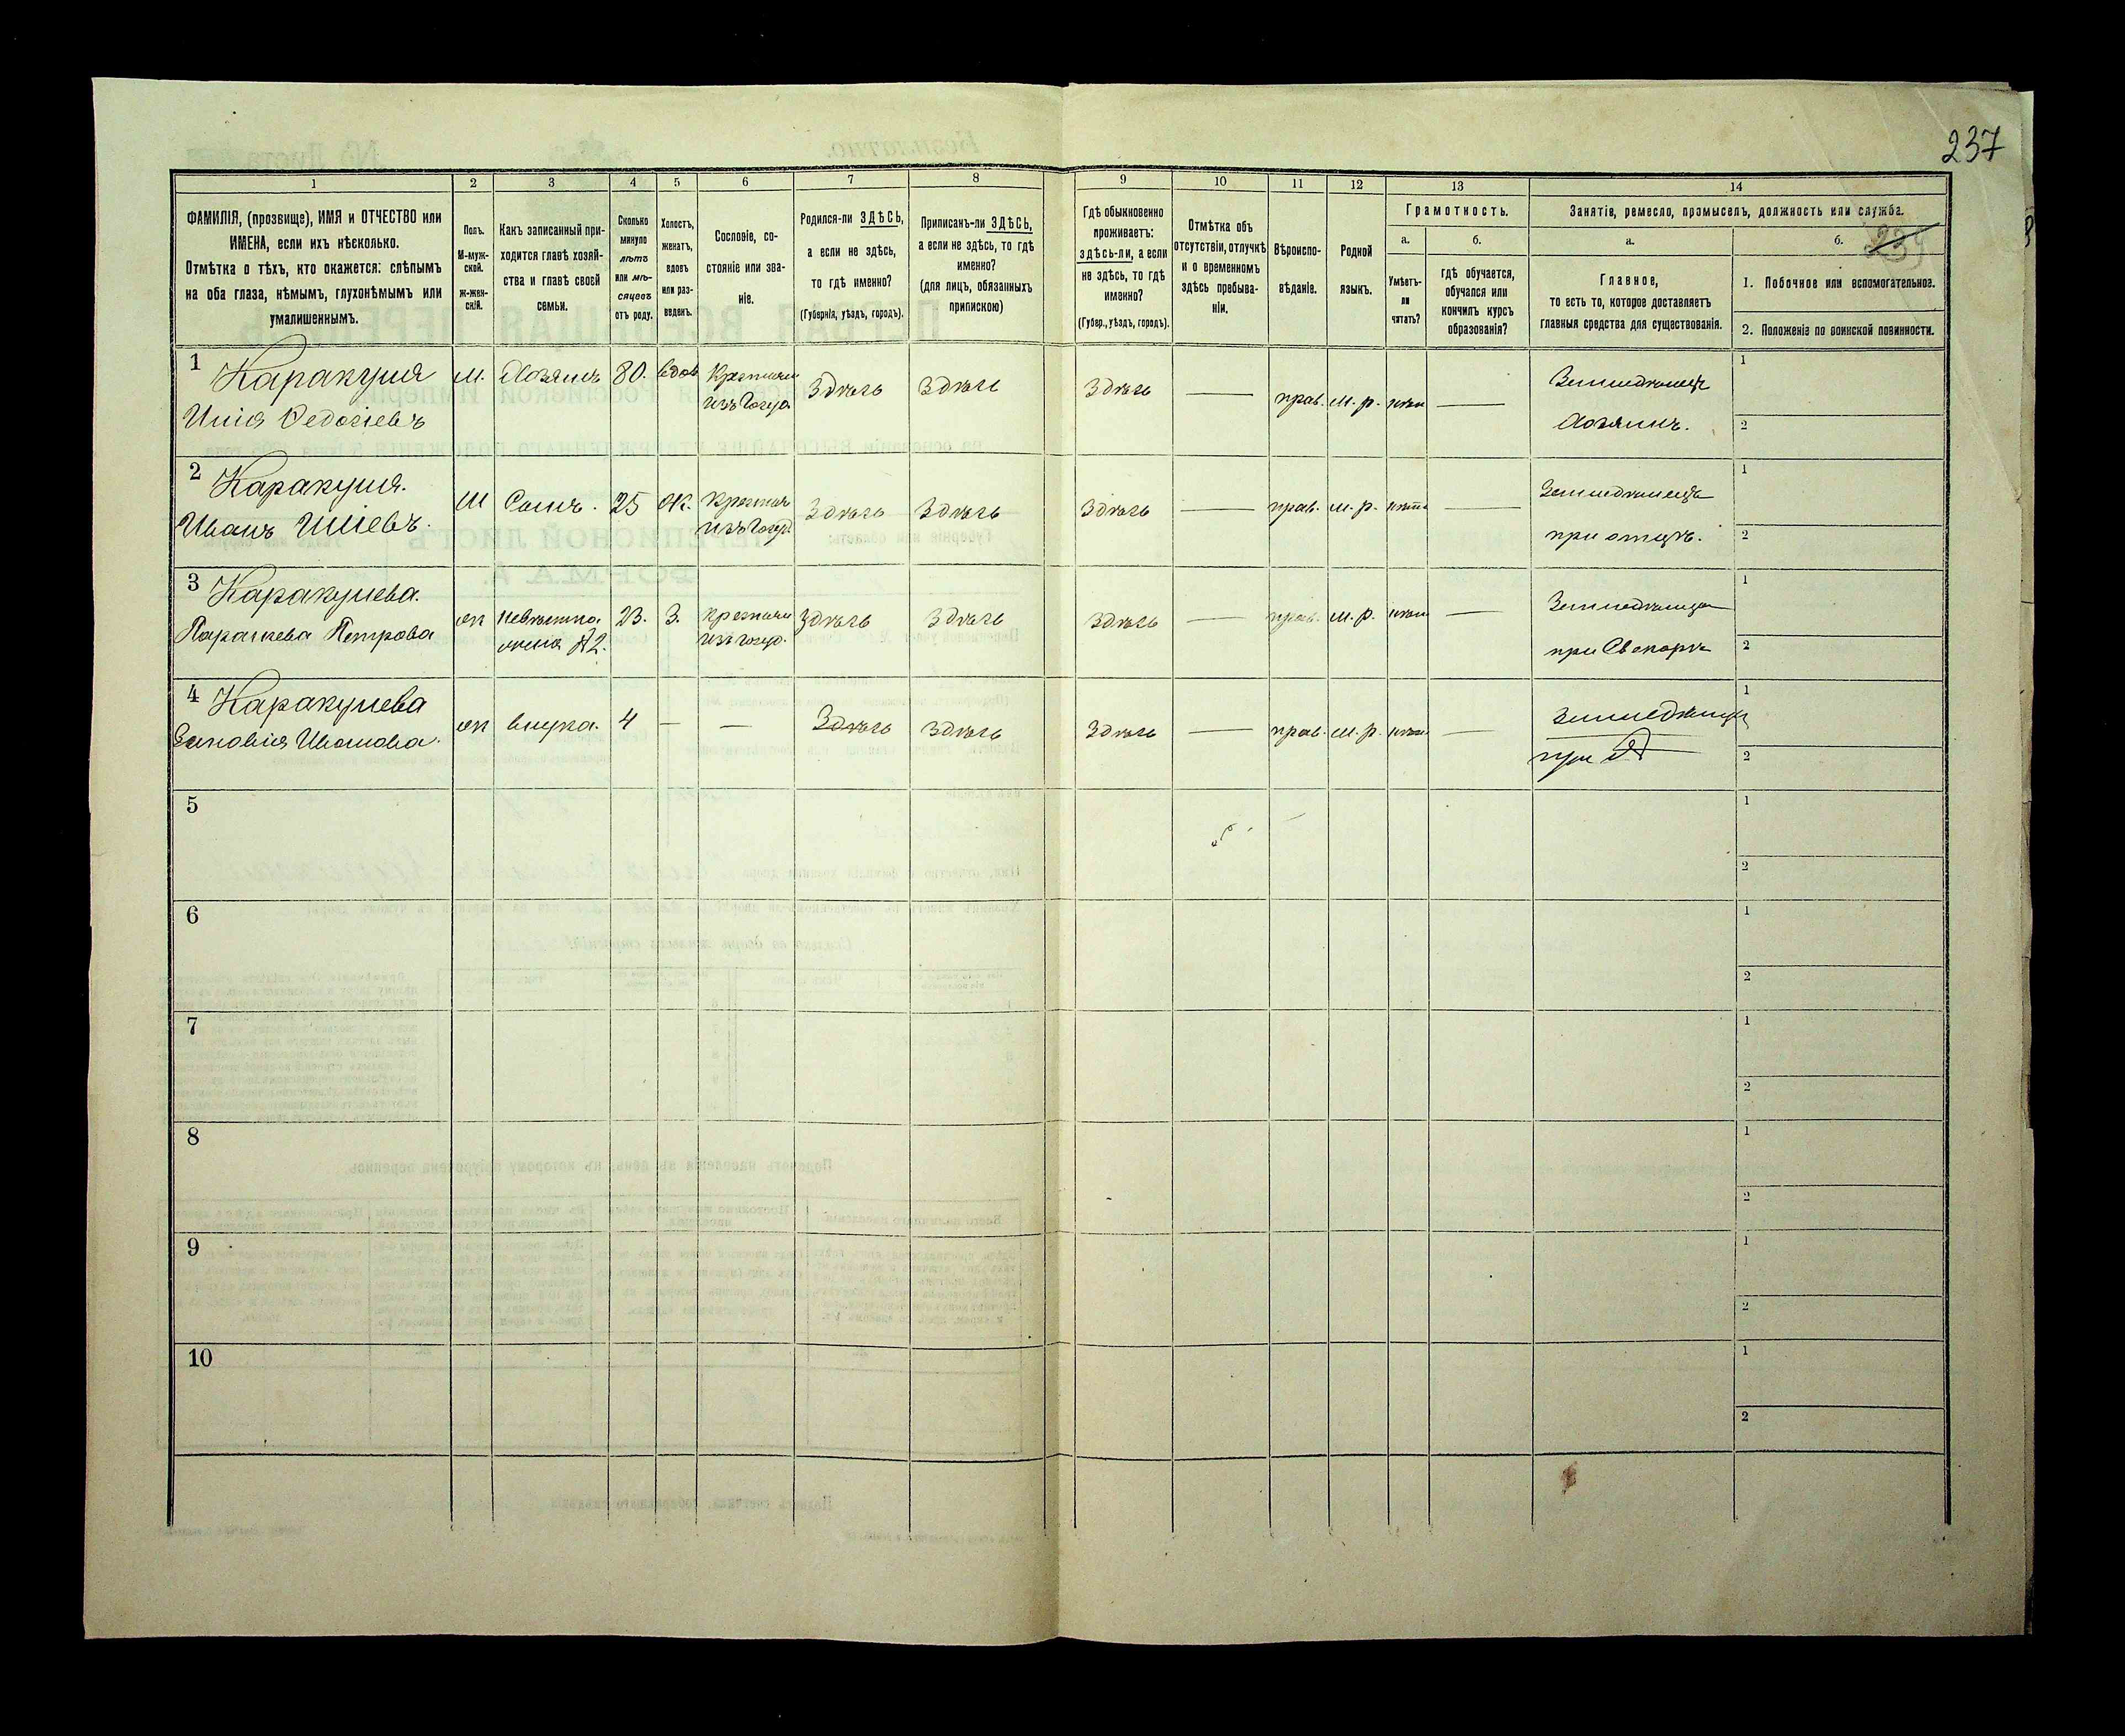 237
1 2 3 4 5 6 7 8 9 10 11 12 13 14
ФАМИЛІЯ, (прозвище), ИМЯ и ОТЧЕСТВО или
ИМЕНА, если ихъ нѣсколько.
Отмѣтка о тѣхъ, кто окажется: слѣпымъ
на оба глаза, нѣмымъ, глухонѣмымъ или
умалишеннымъ.
Полъ.
М-муж-
ской.
ж-жен-
скій.
Какъ записанный при-
ходится главѣ хозяй-
ства и главѣ своей
семьи.
Сколько
минуло
лѣтъ
или мѣ-
сяцевъ
отъ роду.
Холостъ,
женатъ,
вдовъ
или раз-
веденъ.
Сословіе, со-
стояніе или зва-
ніе.
Родился-ли ЗДѢСЬ,
а если не здѣсь,
то гдѣ именно?
(Губернія, уѣздъ, городъ).
Приписанъ-ли ЗДѢСЬ,
а если не здѣсь, то гдѣ
именно?
(для лицъ, обязанныхъ
припискою)
Гдѣ обыкновенно
проживаетъ:
здѣсь-ли, а если
не здѣсь, то гдѣ
именно?
(Губер., уѣздъ, городъ).
Отмѣтка объ
отсутствіи, отлучкѣ
и о временномъ
здѣсь пребыва-
ніи.
Вѣроиспо-
вѣданіе.
Родной
языкъ.
Грамотность.
а.
Умѣетъ-
ли
читать?
б.
гдѣ обучается,
обучался или
кончилъ курсъ
образованія?
Занятіе, ремесло, промыселъ, должность или служба.
а.
Главное,
то есть то, которое доставляетъ
главныя средства для существованія.
б.
1. Побочное или вспомогательное.
2. Положеніе по воинской повинности.
1 Каракуця м. Хозяинъ 80. вдов Крестьян Здѣсь Здѣсь Здѣсь — прав. м. р. нѣт — Земледѣлецъ 1
Федосіевъ изъ Госуд. Хозяинъ. 2
2 Каракуця. М Сынъ. 25 Ж. Крестьян Здѣсь Здѣсь Здѣсь — прав. м. р. нѣтъ — Земледѣлецъ 1
Иванъ изъ Госуд. при отцѣ. 2
3 Каракуцева. ж невѣстка 23. З. Крестьян Здѣсь Здѣсь Здѣсь — прав. м. р. нѣт — Земледѣлица 1
Параскева Петрова жена №2. изъ Госуд. при Свекорѣ 2
4 Каракуцева ж внука. 4 — — Здѣсь Здѣсь Здѣсь — прав. м. р. нѣт — Земледѣлица 1
Зиновія Иванова. при 2
5 1
2
6 1
2
7 1
2
8 1
2
9 1
2
10 1
2